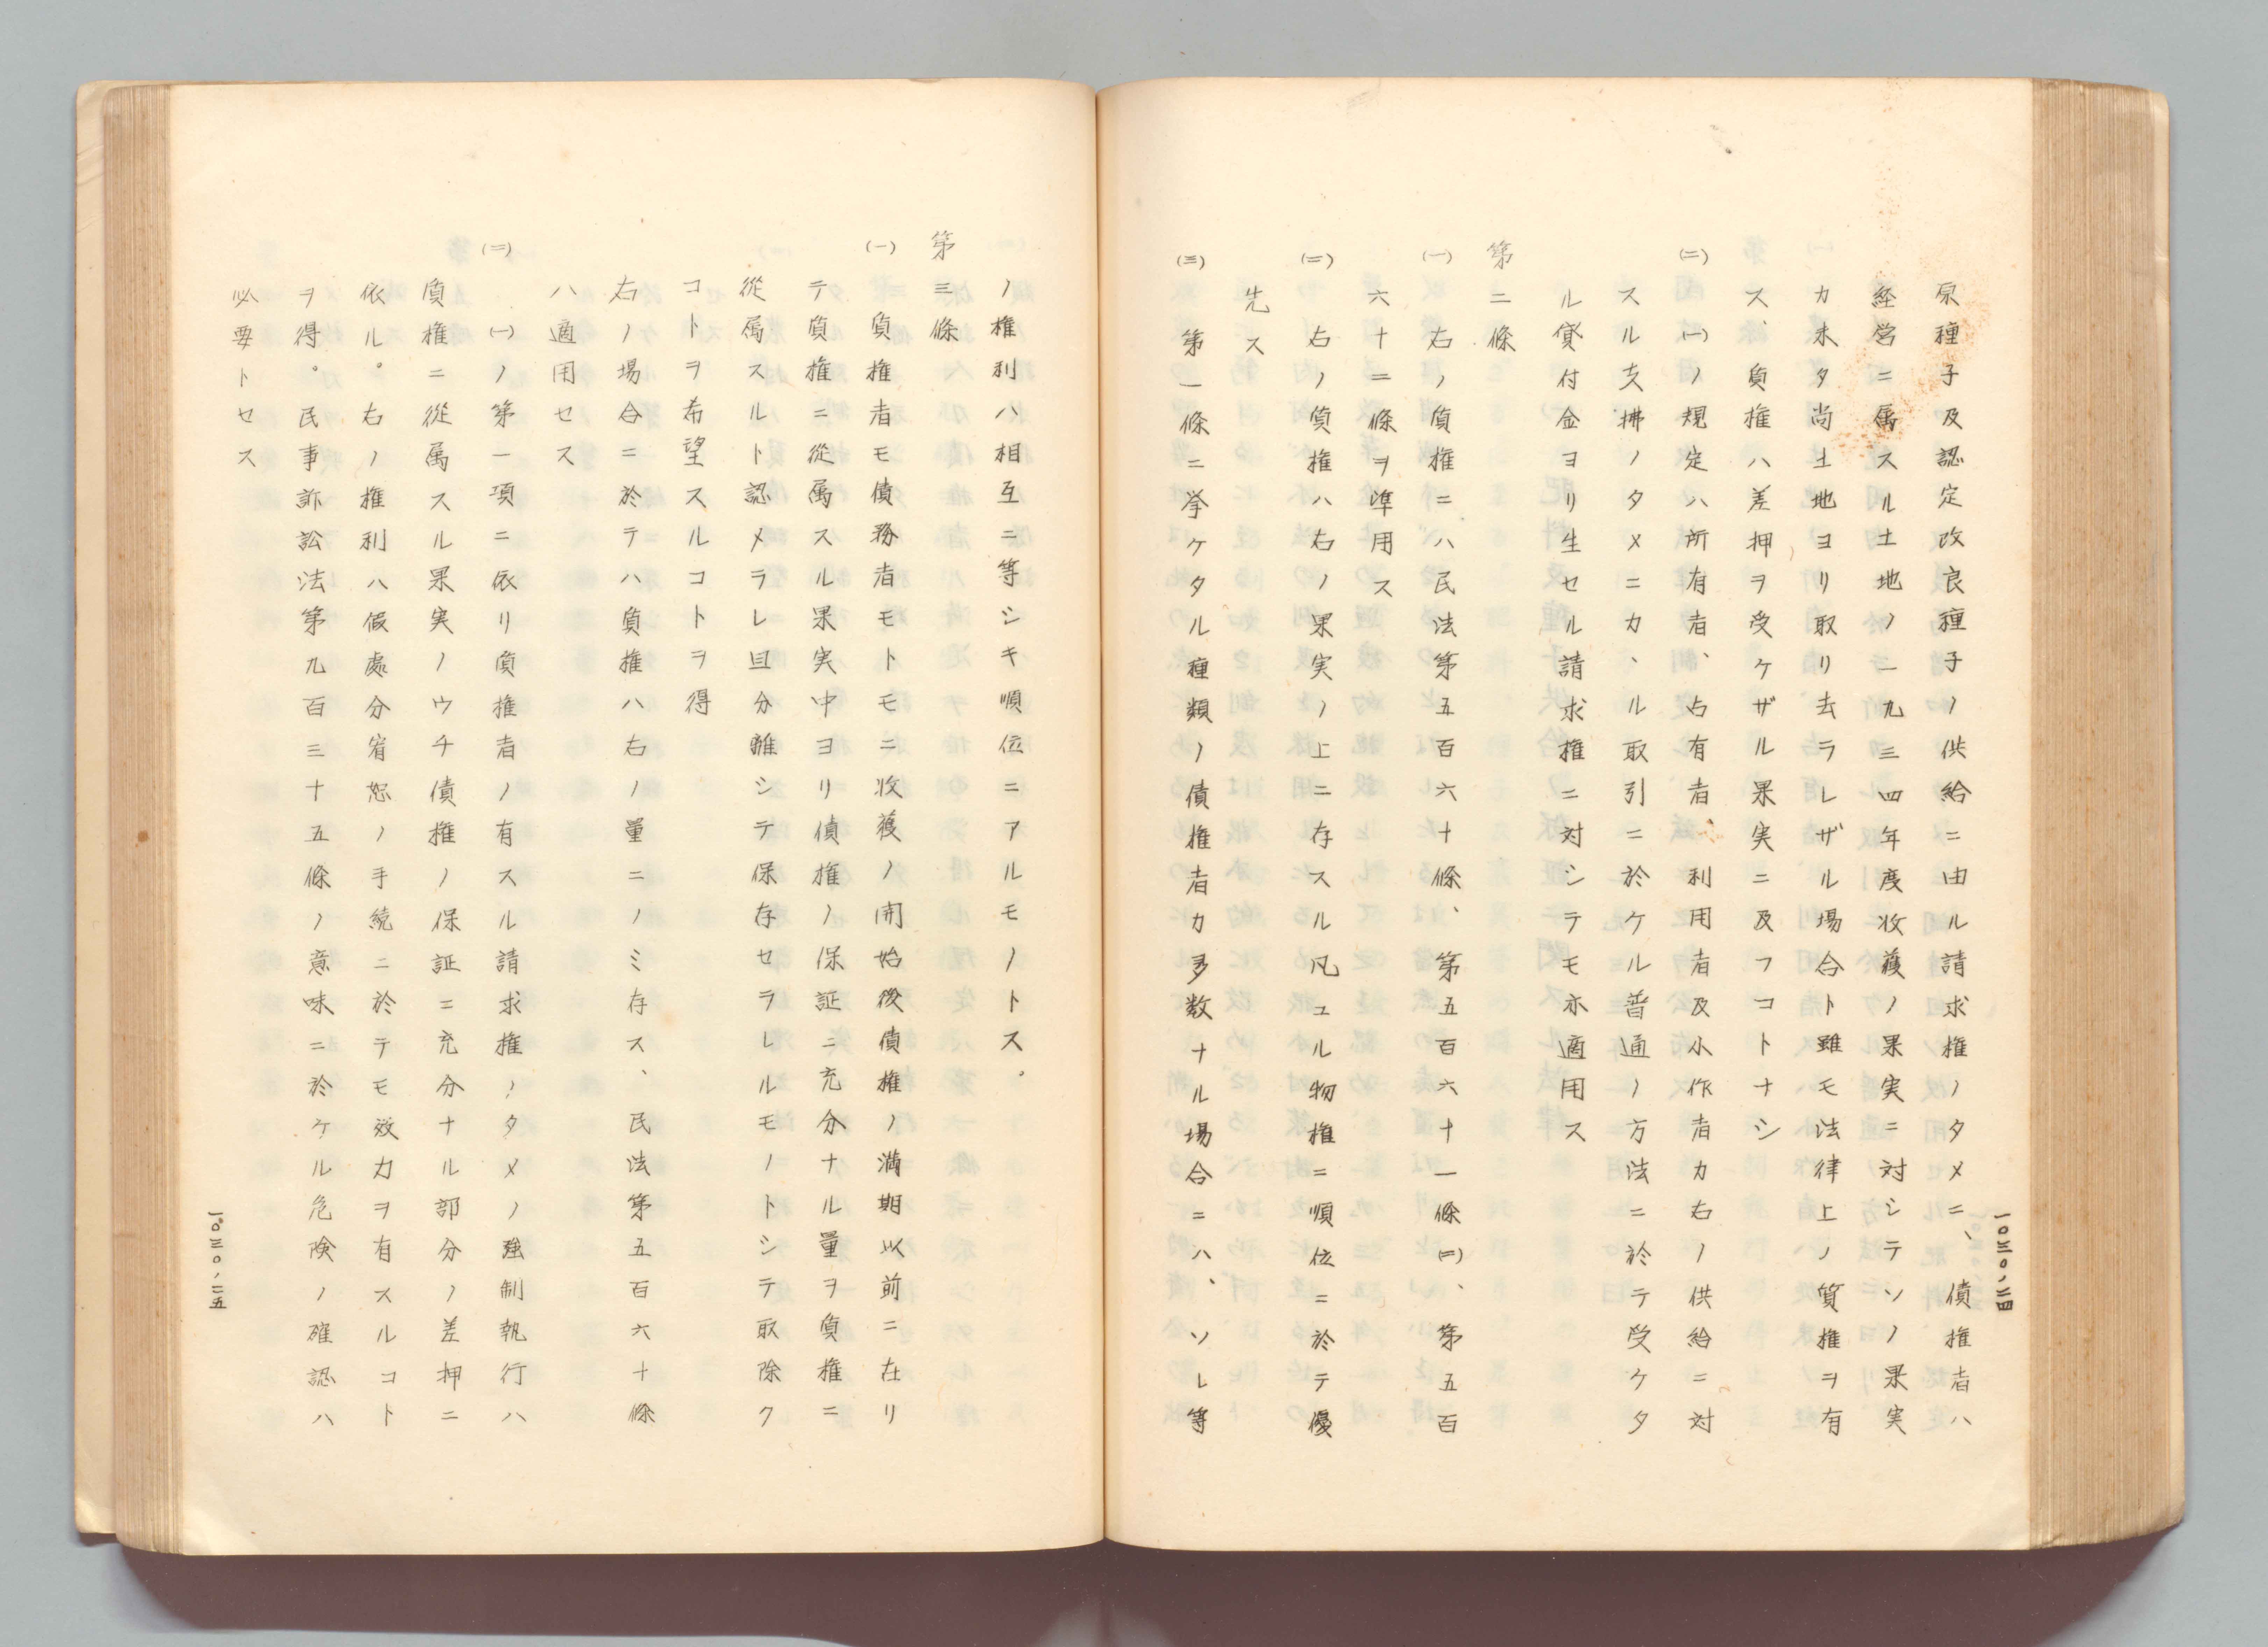 原種子及認定改良種子ノ供給ニ由ル請求権ノタメニ、債権者ハ
経営ニ属スル土地ノ一九三四年度收獲ノ果実ニ対シテソノ果実
カ未タ尚土地ヨリ取リ去ラレザル場合ト雖モ法律上ノ質権ヲ有
ス、質権ハ差押ヲ受ケザル果実ニ及フコトナシ
(二) (一)ノ規定ハ所有者、占有者、利用者及小作者カ右ノ供給ニ対
スル支拂ノタメニカヽル取引ニ於ケル普通ノ方法ニ於テ受ケタ
ル貸付金ヨリ生セル請求権ニ対シテモ亦適用ス
第二條
(一) 右ノ質権ニハ民法第五百六十條、第五百六十一條(二)、第五百
六十二條ヲ準用ス
(二) 右ノ質権ハ右ノ果実ノ上ニ存スル凡ユル物権ニ順位ニ於テ優
先ス
(三) 第一條ニ挙ケタル種類ノ債権者カ多数ナル場合ニハ、ソレ等
一〇三〇、二四
ノ権利ハ相互ニ等シキ順位ニアルモノトス。
第三條
(一) 質権者モ債務者モトモニ收獲ノ開始後債権ノ満期以前ニ在リ
テ質権ニ從属スル果実中ヨリ債権ノ保証ニ充分ナル量ヲ質権ニ
從属スルト認メラレ且分離シテ保存セラレルモノトシテ取除ク
コトヲ希望スルコトヲ得
右ノ場合ニ於テハ質権ハ右ノ量ニノミ存ス、民法第五百六十條
ハ適用セス
(二) (一)ノ第一項ニ依リ質権者ノ有スル請求権ノタメノ強制執行ハ
質権ニ從属スル果実ノウチ債権ノ保証ニ充分ナル部分ノ差押ニ
依ル。右ノ権利ハ假處分宥恕ノ手続ニ於テモ效力ヲ有スルコト
ヲ得。民事訴訟法第九百三十五條ノ意味ニ於ケル危険ノ確認ハ
必要トセス
一〇三〇、二五